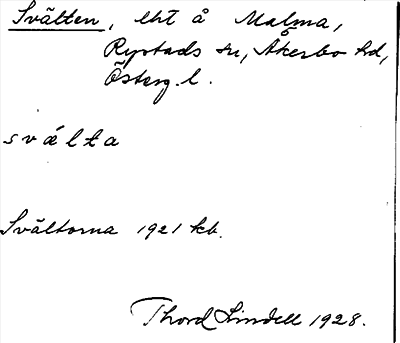 Svälten, lht å Malma,
Rystads sn, Åkerbo hd,
Österg. l.
svälta
Svältorna 1921 kb.
Thord Lindell 1928.